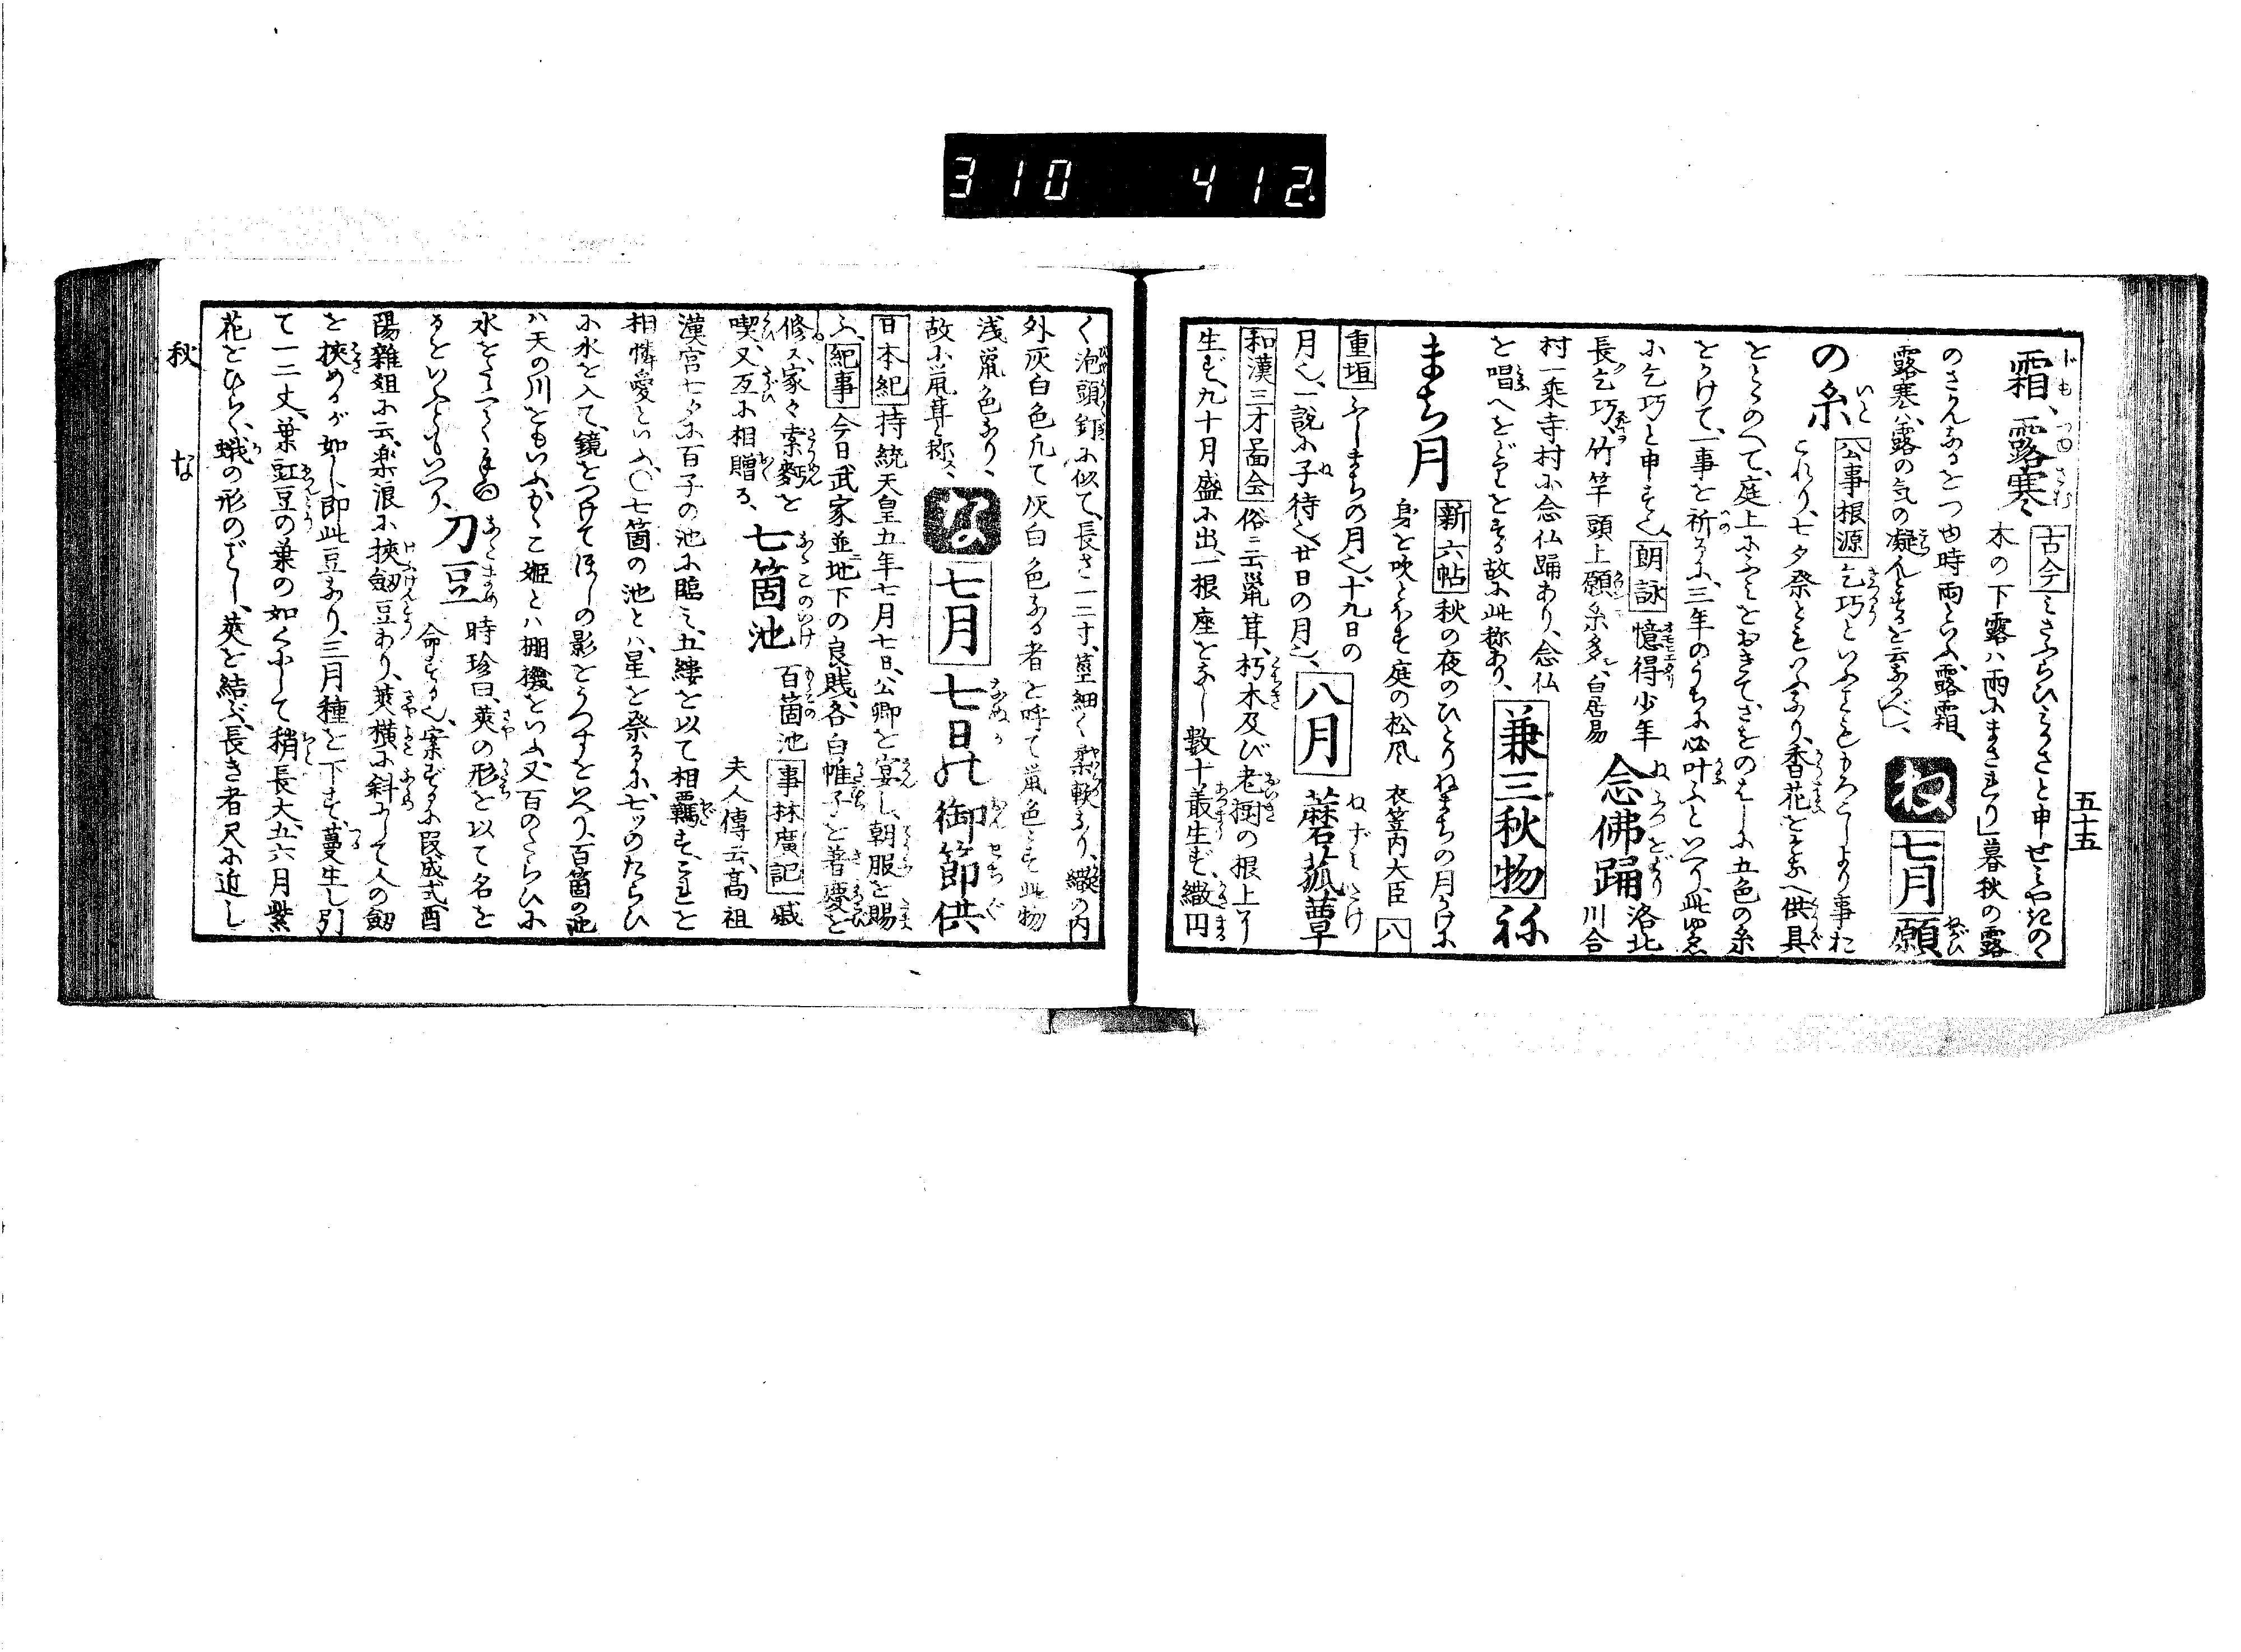 310 412.
五十五
霜、露寒 古今 みさふらひみかさと申せみやぎのゝ
木の下露ハ雨にまされり」暮秋の露
のさむなるをつゆ時雨といふ、露霜、
露寒ハ露の気の凝んとするを云なるべし、 ね 七月 願
の糸 公事根源 乞巧といふこともろこしより事お
これり、七夕祭ともいふなり、香花をそなへ供具
をとゝのへて、庭上にふみをおきてさをのはしに五色の糸
をかけて、一事を祈るに、三年のうちに必叶ふといへり、此ゆゑ
に乞巧と申すなり、朗詠 憶得少年
長乞巧、竹竿頭上願糸多、白居易 念佛踊 洛北川合
村一乗寺村に念仏踊あり、念仏
を唱へをどりをする故に此称あり、 兼三秋物 ね
まち月 新六帖 秋の夜のひとりねまちの月かけに
身を吹とほす庭の松風 衣笠内大臣 八
重垣 ふしまちの月也、十九日の
月也、一説に子待也、廿日の月、 八月 蘑菰蕈
和漢三才啚会 俗ニ云鼠茸、朽木及び老樹の根上に
生ず、九十月盛に出、一根座をなし数十叢生ず、繖円
く泡頭釘に似て、長さ一二寸、莖細く柔軟なり、繖の内
外灰白色凡て灰白色なる者と呼て鼠色とす此物
浅鼠色なり、
故に鼠茸と称ス、 な 七月 七日の御節供
日本紀 持統天皇五年七月七日、公卿を宴し、朝服を賜
ふ、 紀事 今日武家並ニ地下の良賎、各白帷子を着、慶を
修ス、家々索麪を
喫、又互に相贈る、 七箇池 百箇池 事林廣記 戚
夫人傳云、高祖
漢宮七夕に百子の池に臨ミ、五縷を以て相羈す、これを
相憐愛といふ、〇七箇の池とハ、星を祭るに七ツのたらひ
に水を入て、鏡をつけてほしの影をうつすをいへり、百箇の池
ハ天の川をもいふ、かゝこ姫とハ棚機をいふ、又百のたらひに
水をたゝへ
るをいふともいへり、 刀豆 時珍曰、莢の形を以て名を
命ずる也、案ずるに段成式酉
陽雜俎に云、楽浪に挾劔豆あり、莢横に斜にして人の劔
を挾めるが如し、即此豆なり、三月種を下す、蔓生し引
て一二丈、葉豇豆の葉の如くにして稍長大、五六月紫
花をひらく、蛾の形のごとし、莢を結ぶ、長き者尺に近し
秋 な